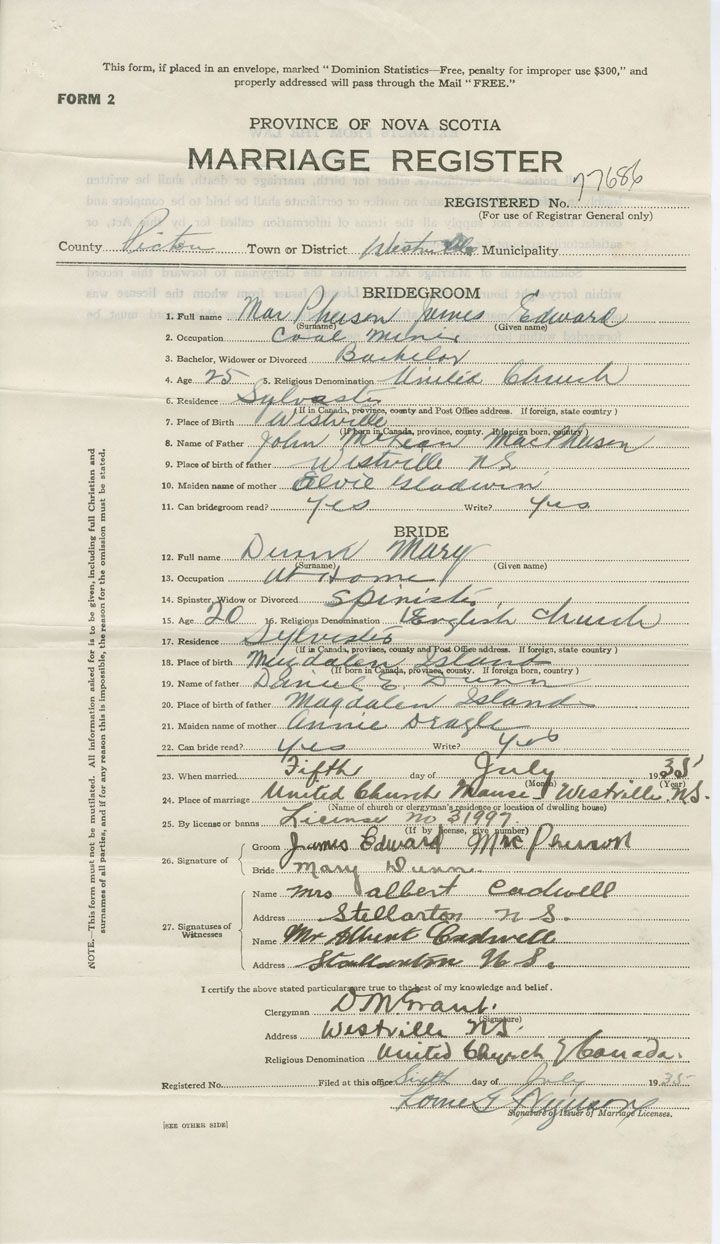 This form, if placed in an envelope, marked "Dominion Statistics—Free, penalty for improper use $300," and
properly addressed will pass through the Mail "FREE."
FORM 2
PROVINCE OF NOVA SCOTIA
MARRIAGE REGISTER
REGISTERED No. 77686
(For use of Registrar General only)
County Pictou Town or District Westville Municipality
BRIDEGROOM
1. Full name MacPherson James Edward
(Surname) (Given name)
2. Occupation Coal Miner
3. Bachelor, Widower or Divorced Bachelor
4. Age 25 5. Religious Denomination United Church
6. Residence Sylvester
(If in Canada, province, county and Post Office address. If foreign, state country)
7. Place of Birth Westville
(If born in Canada, province, county. If foreign born, country)
8. Name of Father John McLean MacPherson
9. Place of birth of father Westville N.S.
10. Maiden name of mother Elvie Gladwin
11. Can bridegroom read? Yes Write? Yes
BRIDE
12. Full name Dunn Mary
(Surname) (Given name)
13. Occupation At Home
14. Spinster, Widow or Divorced Spinster
15. Age 20 16. Religious Denomination English Church
17. Residence Sylvester
(If in Canada, province, county and Post Office address. If foreign, state country)
18. Place of birth Magdalen Island
(If born in Canada, province, county. If foreign born, country)
19. Name of father Daniel E. Dunn
20. Place of birth of father Magdalen Island
21. Maiden name of mother Annie Deagle
22. Can bride read? Yes Write? Yes
23. When married Fifth day of July 1935
(Month) (Year)
24. Place of marriage United Church Manse, Westville N.S.
(Name of church or clergyman's residence or location of dwelling house)
25. By license or banns License no 31997
(If by license, give number)
26. Signature of Groom James Edward MacPherson
Bride Mary Dunn
27. Signatures of Witnesses
Name Mrs albert Cadwell
Address Stellarton N.S.
Name Mr Albert Cadwell
Address Stellarton N.S.
I certify the above stated particulars are true to the best of my knowledge and belief.
Clergyman D M Grant.
(Signature)
Address Westville N.S.
Religious Denomination United Church of Canada.
Registered No. Filed at this office Sixth day of July 1935
Signature of Issuer of Marriage Licenses.
[SEE OTHER SIDE]
NOTE.—This form must not be mutilated. All information asked for is to be given, including full Christian and
surnames of all parties, and if for any reason this is impossible, the reason for the omission must be stated.